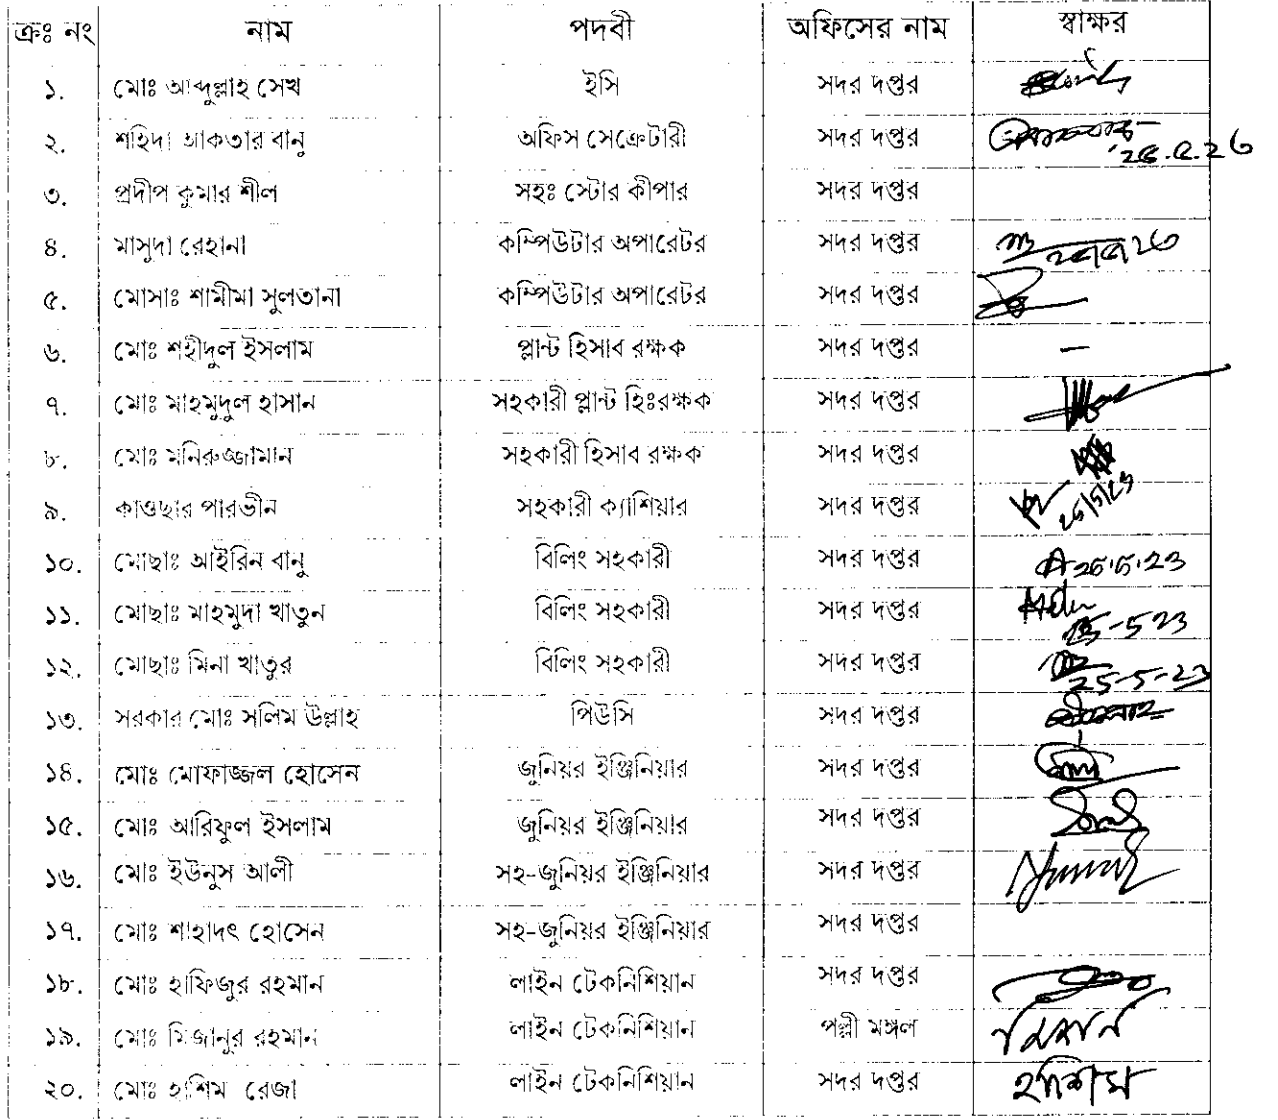 ক্রঃ নং নাম পদবী অফিসের নাম স্বাক্ষর
১. মোঃ আব্দুল্লাহ সেখ ইসি সদর দপ্তর
২. শহিদা আকতার বানু অফিস সেক্রেটারী সদর দপ্তর ২৫.৫.২৩
৩. প্রদীপ কুমার শীল সহঃ স্টোর কীপার সদর দপ্তর
৪. মাসুদা রেহানা কম্পিউটার অপারেটর সদর দপ্তর
৫. মোসাঃ শামীমা সুলতানা কম্পিউটার অপারেটর সদর দপ্তর
৬. মোঃ শহীদুল ইসলাম প্লান্ট হিসাব রক্ষক সদর দপ্তর –
৭. মোঃ মাহমুদুল হাসান সহকারী প্লান্ট হিঃরক্ষক সদর দপ্তর
৮. মোঃ মনিরুজ্জামান সহকারী হিসাব রক্ষক সদর দপ্তর
৯. কাওছার পারভীন সহকারী ক্যাশিয়ার সদর দপ্তর 25/5/23
১০. মোছাঃ আইরিন বানু বিলিং সহকারী সদর দপ্তর 25.5.23
১১. মোছাঃ মাহমুদা খাতুন বিলিং সহকারী সদর দপ্তর 25-5-23
১২. মোছাঃ মিনা খাতুর বিলিং সহকারী সদর দপ্তর 25-5-23
১৩. সরকার মোঃ সলিম উল্লাহ পিউসি সদর দপ্তর
১৪. মোঃ মোফাজ্জল হোসেন জুনিয়র ইঞ্জিনিয়ার সদর দপ্তর
১৫. মোঃ আরিফুল ইসলাম জুনিয়র ইঞ্জিনিয়ার সদর দপ্তর
১৬. মোঃ ইউনুস আলী সহ-জুনিয়র ইঞ্জিনিয়ার সদর দপ্তর
১৭. মোঃ শাহাদৎ হোসেন সহ-জুনিয়র ইঞ্জিনিয়ার সদর দপ্তর
১৮. মোঃ হাফিজুর রহমান লাইন টেকনিশিয়ান সদর দপ্তর
১৯. মোঃ মিজানুর রহমান লাইন টেকনিশিয়ান পল্লী মঙ্গল
২০. মোঃ হাশিম রেজা লাইন টেকনিশিয়ান সদর দপ্তর হাশিম